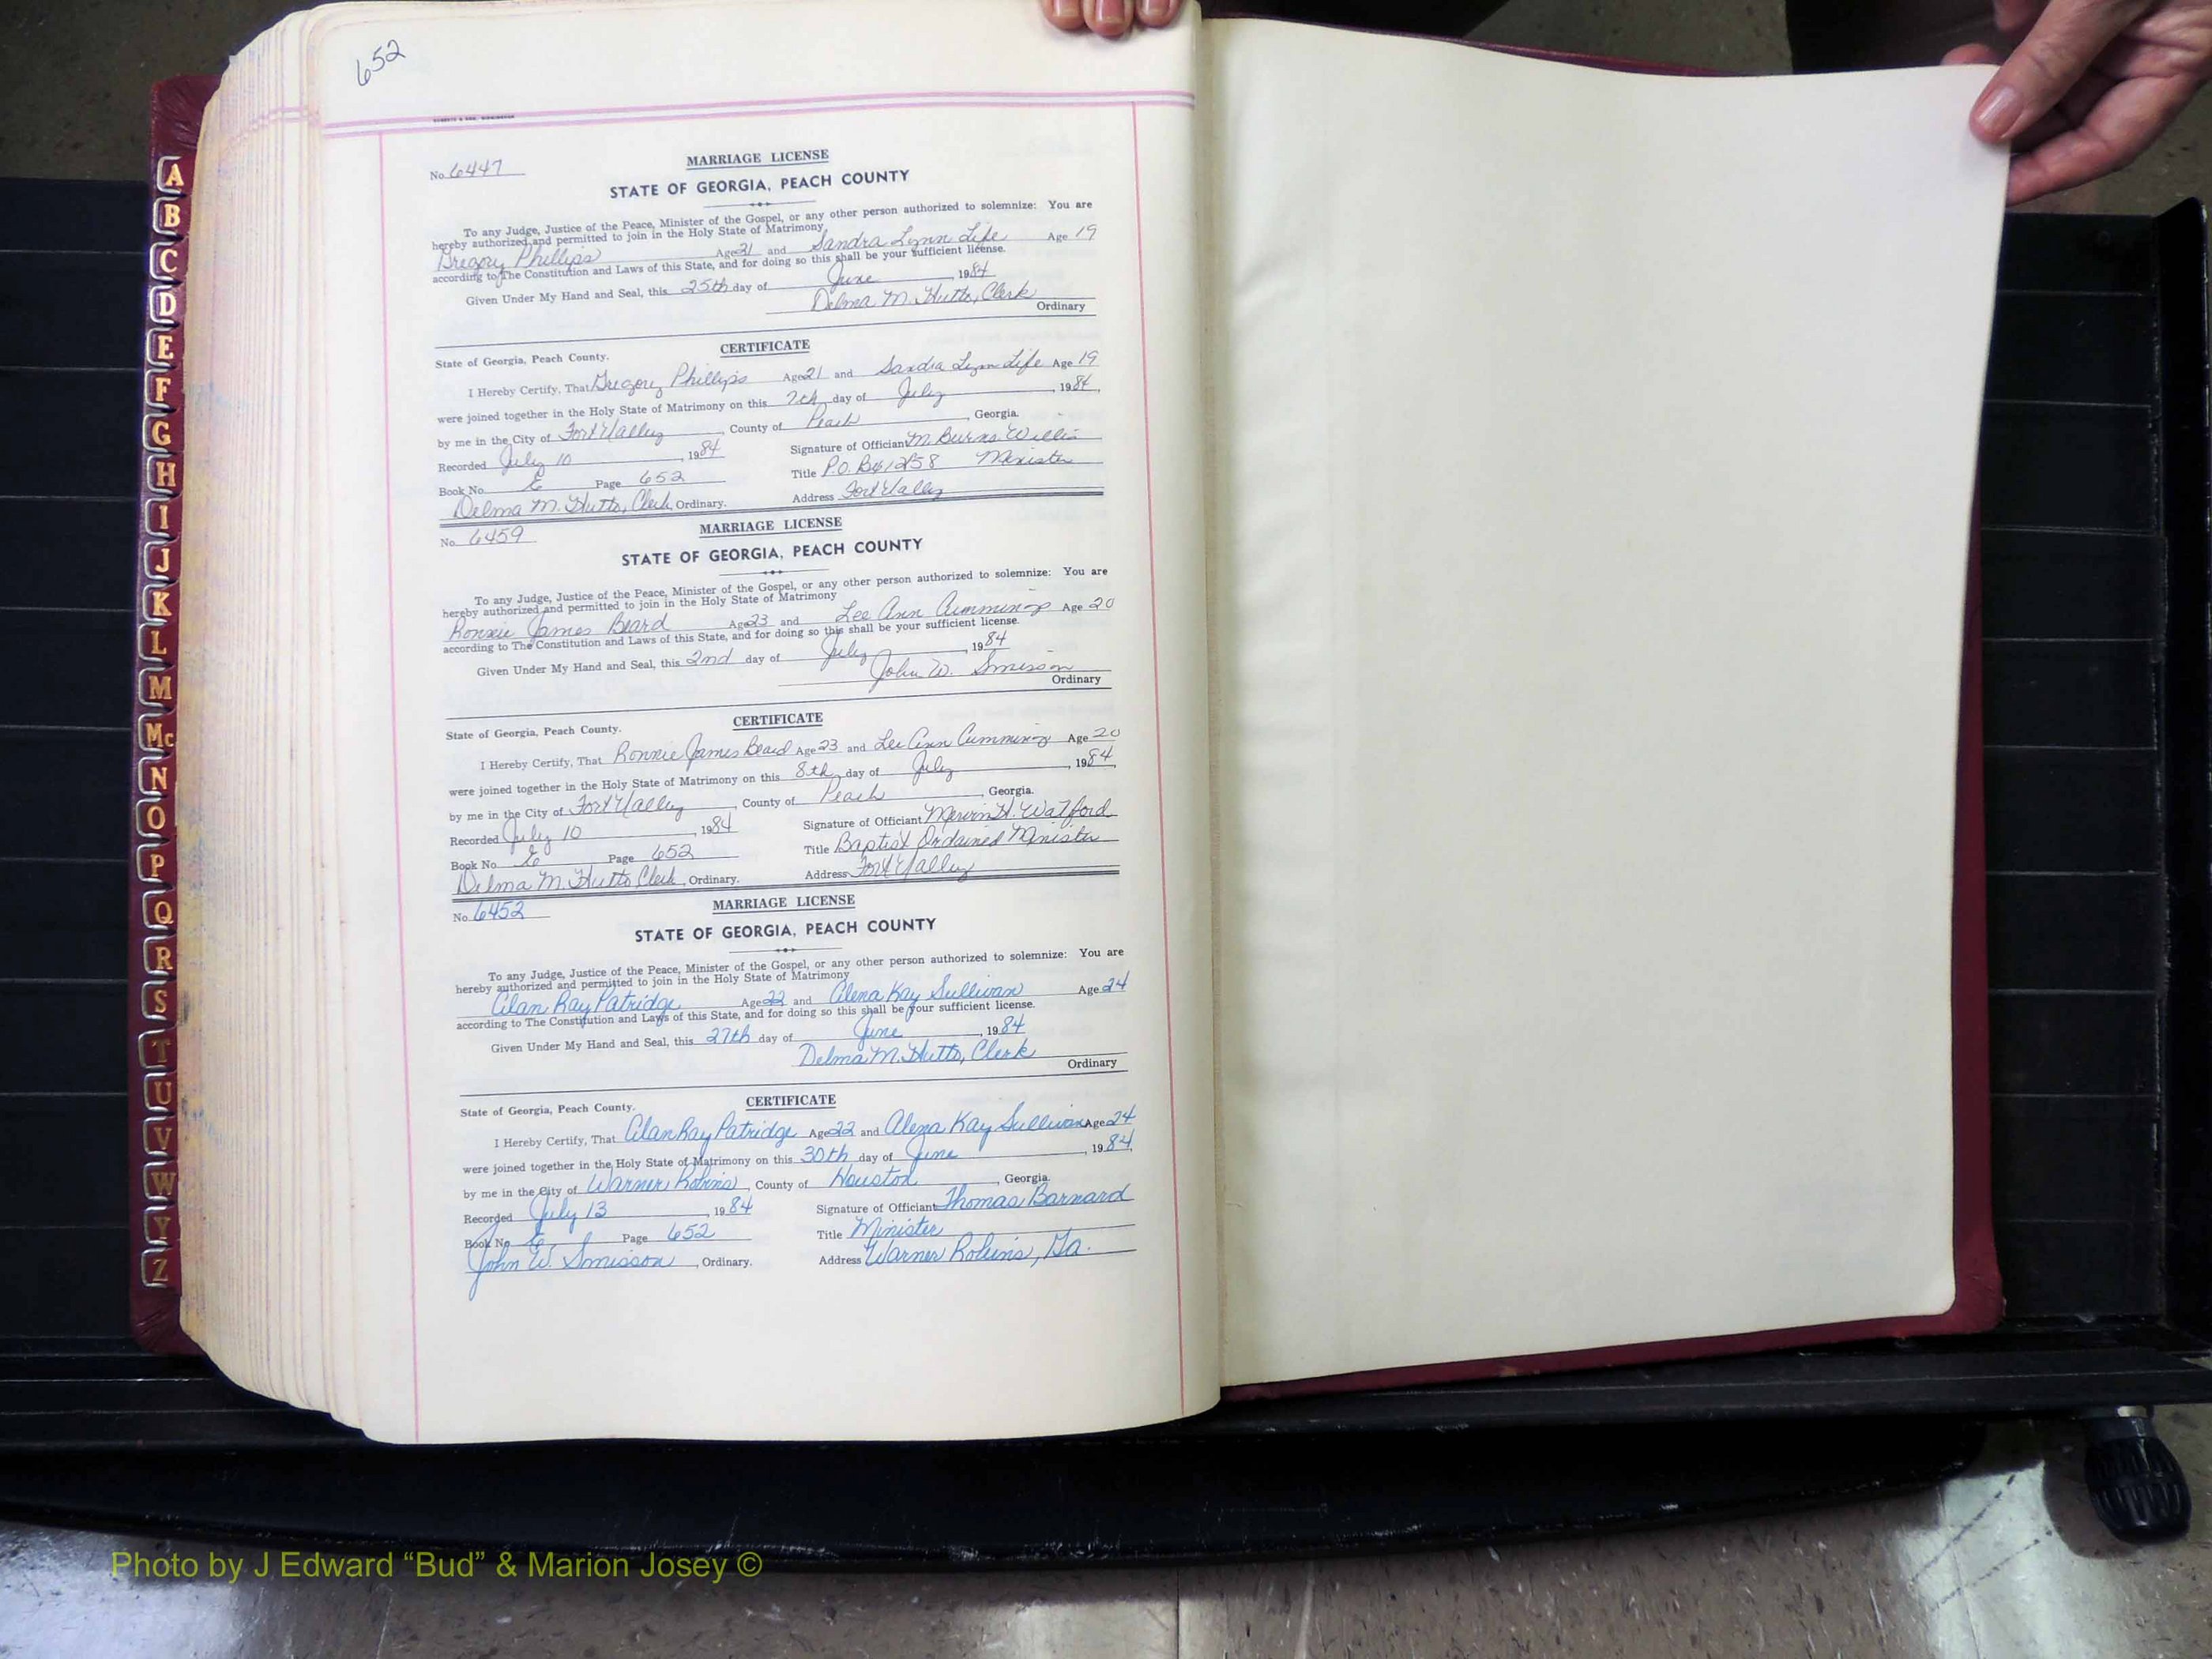 652
No. 6447
MARRIAGE LICENSE
STATE OF GEORGIA, PEACH COUNTY
To any Judge, Justice of the Peace, Minister of the Gospel, or any other person authorized to solemnize: You are
hereby authorized and permitted to join in the Holy State of Matrimony
Gregory Phillips Age 21 and Sandra Lynn Life Age 19
according to The Constitution and Laws of this State, and for doing so this shall be your sufficient license.
Given Under My Hand and Seal, this 25th day of June, 1984
Delma M. Hutto, Clerk
Ordinary
CERTIFICATE
State of Georgia, Peach County.
I Hereby Certify, That Gregory Phillips Age 21 and Sandra Lynn Life Age 19
were joined together in the Holy State of Matrimony on this 7th day of July, 1984,
by me in the City of Fort Valley, County of Peach, Georgia.
Recorded July 10, 1984
Signature of Officiant M. Burns Willis
Book No. E Page 652
Title P.O. Box 1258 Minister
Delma M. Hutto, Clerk, Ordinary.
Address Fort Valley
No. 6459
MARRIAGE LICENSE
STATE OF GEORGIA, PEACH COUNTY
To any Judge, Justice of the Peace, Minister of the Gospel, or any other person authorized to solemnize: You are
hereby authorized and permitted to join in the Holy State of Matrimony
Ronnie James Beard Age 23 and Lee Ann Cummings Age 20
according to The Constitution and Laws of this State, and for doing so this shall be your sufficient license.
Given Under My Hand and Seal, this 2nd day of July, 1984
John W. Smisson
Ordinary
CERTIFICATE
State of Georgia, Peach County.
I Hereby Certify, That Ronnie James Beard Age 23 and Lee Ann Cummings Age 20
were joined together in the Holy State of Matrimony on this 8th day of July, 1984,
by me in the City of Fort Valley, County of Peach, Georgia.
Recorded July 10, 1984
Signature of Officiant Mervin H. Watford
Book No. E Page 652
Title Baptist Ordained Minister
Delma M. Hutto Clerk, Ordinary.
Address Fort Valley
No. 6452
MARRIAGE LICENSE
STATE OF GEORGIA, PEACH COUNTY
To any Judge, Justice of the Peace, Minister of the Gospel, or any other person authorized to solemnize: You are
hereby authorized and permitted to join in the Holy State of Matrimony
Alan Ray Patridge Age 22 and Alena Kay Sullivan Age 24
according to The Constitution and Laws of this State, and for doing so this shall be your sufficient license.
Given Under My Hand and Seal, this 27th day of June, 1984
Delma M. Hutto, Clerk
Ordinary
CERTIFICATE
State of Georgia, Peach County.
I Hereby Certify, That Alan Ray Patridge Age 22 and Alena Kay Sullivan Age 24
were joined together in the Holy State of Matrimony on this 30th day of June, 1984,
by me in the City of Warner Robins, County of Houston, Georgia.
Recorded July 13, 1984
Signature of Officiant Thomas Barnard
Book No. E Page 652
Title Minister
John W. Smisson, Ordinary.
Address Warner Robins, Ga.
A
B
C
D
E
F
G
H
I
J
K
L
M
Mc
N
O
P
Q
R
S
T
U
V
W
Y
Z
Photo by J Edward “Bud” & Marion Josey ©